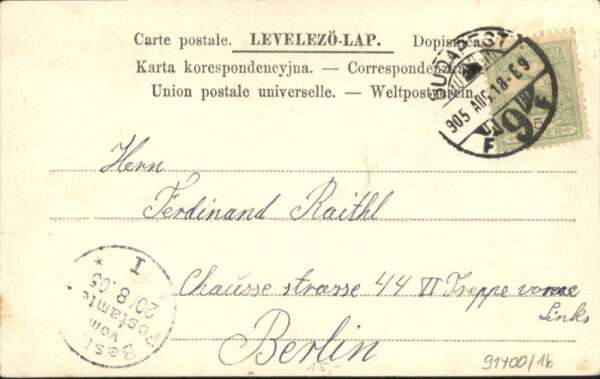 Carte postale. LEVELEZŐ-LAP. Dopisnica.
Karta korespondencyjna. — Correspondenzkarte.
Union postale universelle. — Weltpostverein.
BUDAPEST
905 AUG. 18 - E 9
9
F F
5
Herrn
Ferdinand Raithl
Chausse strasse 44 VI Treppe vorne
Links
Berlin
Best.
vom
Postamte
20/8.05
* I
15,-
91400/16